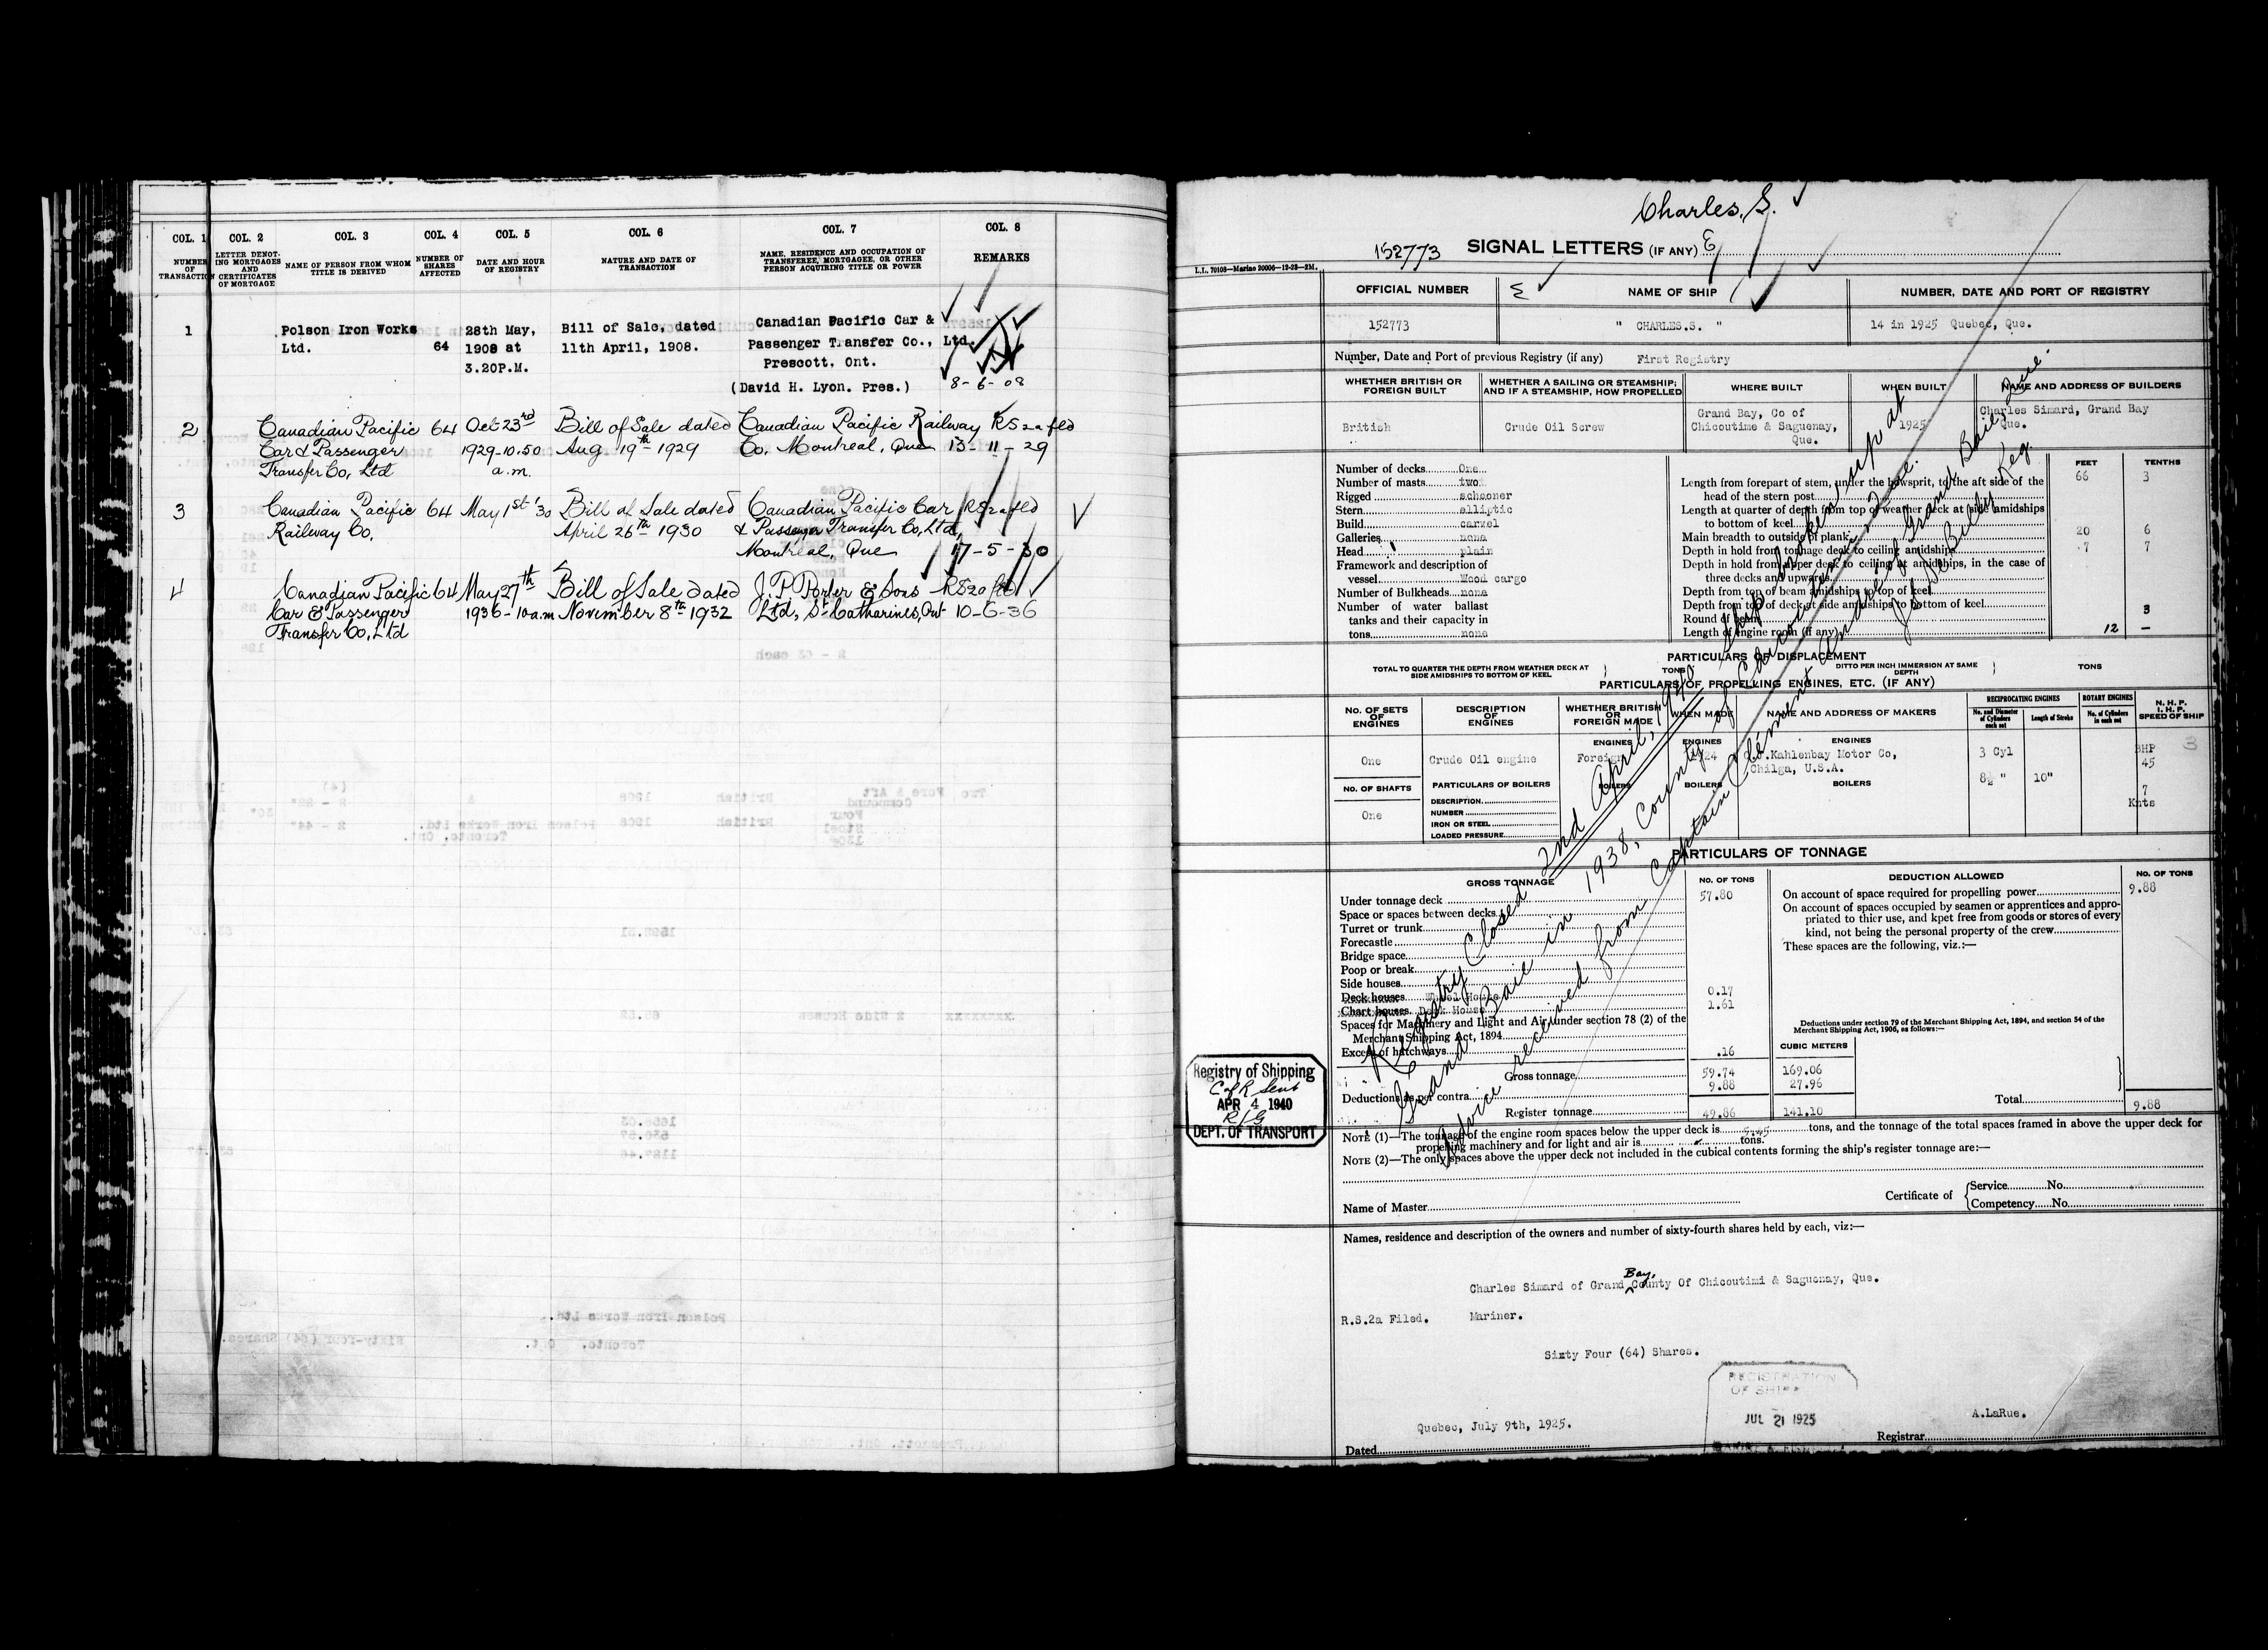 COL. 1 COL. 2 COL. 3 COL. 4 COL. 5 COL. 6 COL. 7 COL. 8
NUMBER OF TRANSACTION
LETTER DENOTING MORTGAGES AND CERTIFICATES OF MORTGAGE
NAME OF PERSON FROM WHOM TITLE IS DERIVED
NUMBER OF SHARES AFFECTED
DATE AND HOUR OF REGISTRY
NATURE AND DATE OF TRANSACTION
NAME, RESIDENCE AND OCCUPATION OF TRANSFEREE, MORTGAGEE, OR OTHER PERSON ACQUIRING TITLE OR POWER
REMARKS
1 Polson Iron Works 28th May, Bill of Sale, dated Canadian Pacific Car &
Ltd. 64 1908 at 11th April, 1908. Passenger Transfer Co., Ltd.
3.20P.M. Prescott. Ont.
(David H. Lyon. Pres.) 8-6-08
2 Canadian Pacific 64 Oct 23rd Bill of Sale dated Canadian Pacific Railway RS2a fld
Car & Passenger 1929-10.50 Aug 19th 1929 Co. Montreal, Que 13-11-29
Transfer Co, Ltd a.m.
3 Canadian Pacific 64 May 1st '30 Bill of Sale dated Canadian Pacific Car RS2a fld
Railway Co, April 26th 1930 & Passenger Transfer Co, Ltd,
Montreal, Que 17-5-30
4 Canadian Pacific 64 May 27th Bill of Sale dated J. P. Porter & Sons RS20 fld
Car & Passenger 1936-10a.m November 8th 1932 Ltd, St Catharines, Ont 10-6-36
Transfer Co, Ltd
Charles, S.
152773 SIGNAL LETTERS (IF ANY)
L.I. 70108—Marine 20006—12-23—2M.
OFFICIAL NUMBER NAME OF SHIP NUMBER, DATE AND PORT OF REGISTRY
152773 " CHARLES.S. " 14 in 1925 Quebec, Que.
Number, Date and Port of previous Registry (if any) First Registry
WHETHER BRITISH OR FOREIGN BUILT
WHETHER A SAILING OR STEAMSHIP; AND IF A STEAMSHIP, HOW PROPELLED
WHERE BUILT
WHEN BUILT
NAME AND ADDRESS OF BUILDERS
British
Crude Oil Screw
Grand Bay, Co of
Chicoutime & Saguenay,
Que.
1925
Charles Simard, Grand Bay
Que.
Number of decks One
Number of masts two
Rigged schooner
Stern elliptic
Build carvel
Galleries none
Head plain
Framework and description of
vessel Wood cargo
Number of Bulkheads none
Number of water ballast
tanks and their capacity in
tons none
FEET TENTHS
Length from forepart of stem, under the bowsprit, to the aft side of the
head of the stern post 66 3
Length at quarter of depth from top of weather deck at side amidships
to bottom of keel
Main breadth to outside of plank 20 6
Depth in hold from tonnage deck to ceiling amidships 7 7
Depth in hold from upper deck to ceiling at amidships, in the case of
three decks and upwards
Depth from top of beam amidships to top of keel
Depth from top of deck at side amidships to bottom of keel
Round of beam 3
Length of engine room (if any) 12 —
PARTICULARS OF DISPLACEMENT
TOTAL TO QUARTER THE DEPTH FROM WEATHER DECK AT SIDE AMIDSHIPS TO BOTTOM OF KEEL TONS
DITTO PER INCH IMMERSION AT SAME DEPTH TONS
PARTICULARS OF PROPELLING ENGINES, ETC. (IF ANY)
No. OF SETS OF ENGINES
DESCRIPTION OF ENGINES
WHETHER BRITISH OR FOREIGN MADE
WHEN MADE
NAME AND ADDRESS OF MAKERS
RECIPROCATING ENGINES
No. and Diameter of Cylinders each set
Length of Stroke
ROTARY ENGINES
No. of Cylinders in each set
N. H. P.
I. H. P.
SPEED OF SHIP
ENGINES ENGINES ENGINES
One Crude Oil engine Foreign 1924 Kahlenbay Motor Co, 3 Cyl BHP 3
Chilga, U.S.A. 45
8½ " 10"
No. OF SHAFTS PARTICULARS OF BOILERS BOILERS BOILERS BOILERS
One
DESCRIPTION
NUMBER
IRON OR STEEL
LOADED PRESSURE
7
Knts
PARTICULARS OF TONNAGE
GROSS TONNAGE No. OF TONS DEDUCTION ALLOWED No. OF TONS
Under tonnage deck 57.80
Space or spaces between decks
Turret or trunk
Forecastle
Bridge space
Poop or break
Side houses
Deck houses Wheel House 0.17
Chart houses Deck House 1.61
Spaces for Machinery and Light and Air under section 78 (2) of the
Merchant Shipping Act, 1894
Excess of hatchways .16
Gross tonnage 59.74 169.06
Deductions as per contra 9.88 27.96
Register tonnage 49.86 141.10
On account of space required for propelling power 9.88
On account of spaces occupied by seamen or apprentices and appro-
priated to thier use, and kpet free from goods or stores of every
kind, not being the personal property of the crew
These spaces are the following, viz.:—
Deductions under section 79 of the Merchant Shipping Act, 1894, and section 54 of the
Merchant Shipping Act, 1906, as follows:—
CUBIC METERS
Total 9.88
Registry Closed 2nd April, 1940 Ship broken up at
Grand Baie in 1938, County of Chicoutimi Que.
Advice received from Captain Clément André of Grand Baie, Que.
Registry of Shipping
C of R Sent
APR 4 1940
R/G
DEPT. OF TRANSPORT
NOTE (1)—The tonnage of the engine room spaces below the upper deck is tons, and the tonnage of the total spaces framed in above the upper deck for
propelling machinery and for light and air is tons.
NOTE (2)—The only spaces above the upper deck not included in the cubical contents forming the ship's register tonnage are:—
Name of Master
Certificate of
Service No.
Competency No.
Names, residence and description of the owners and number of sixty-fourth shares held by each, viz:—
Bay,
Charles Simard of Grand County Of Chicoutimi & Saguenay, Que.
R.S.2a Filed. Mariner.
Sixty Four (64) Shares.
REGISTRATION
OF SHIP
JUL 21 1925
Quebec, July 9th, 1925.
Dated
A.LaRue.
Registrar